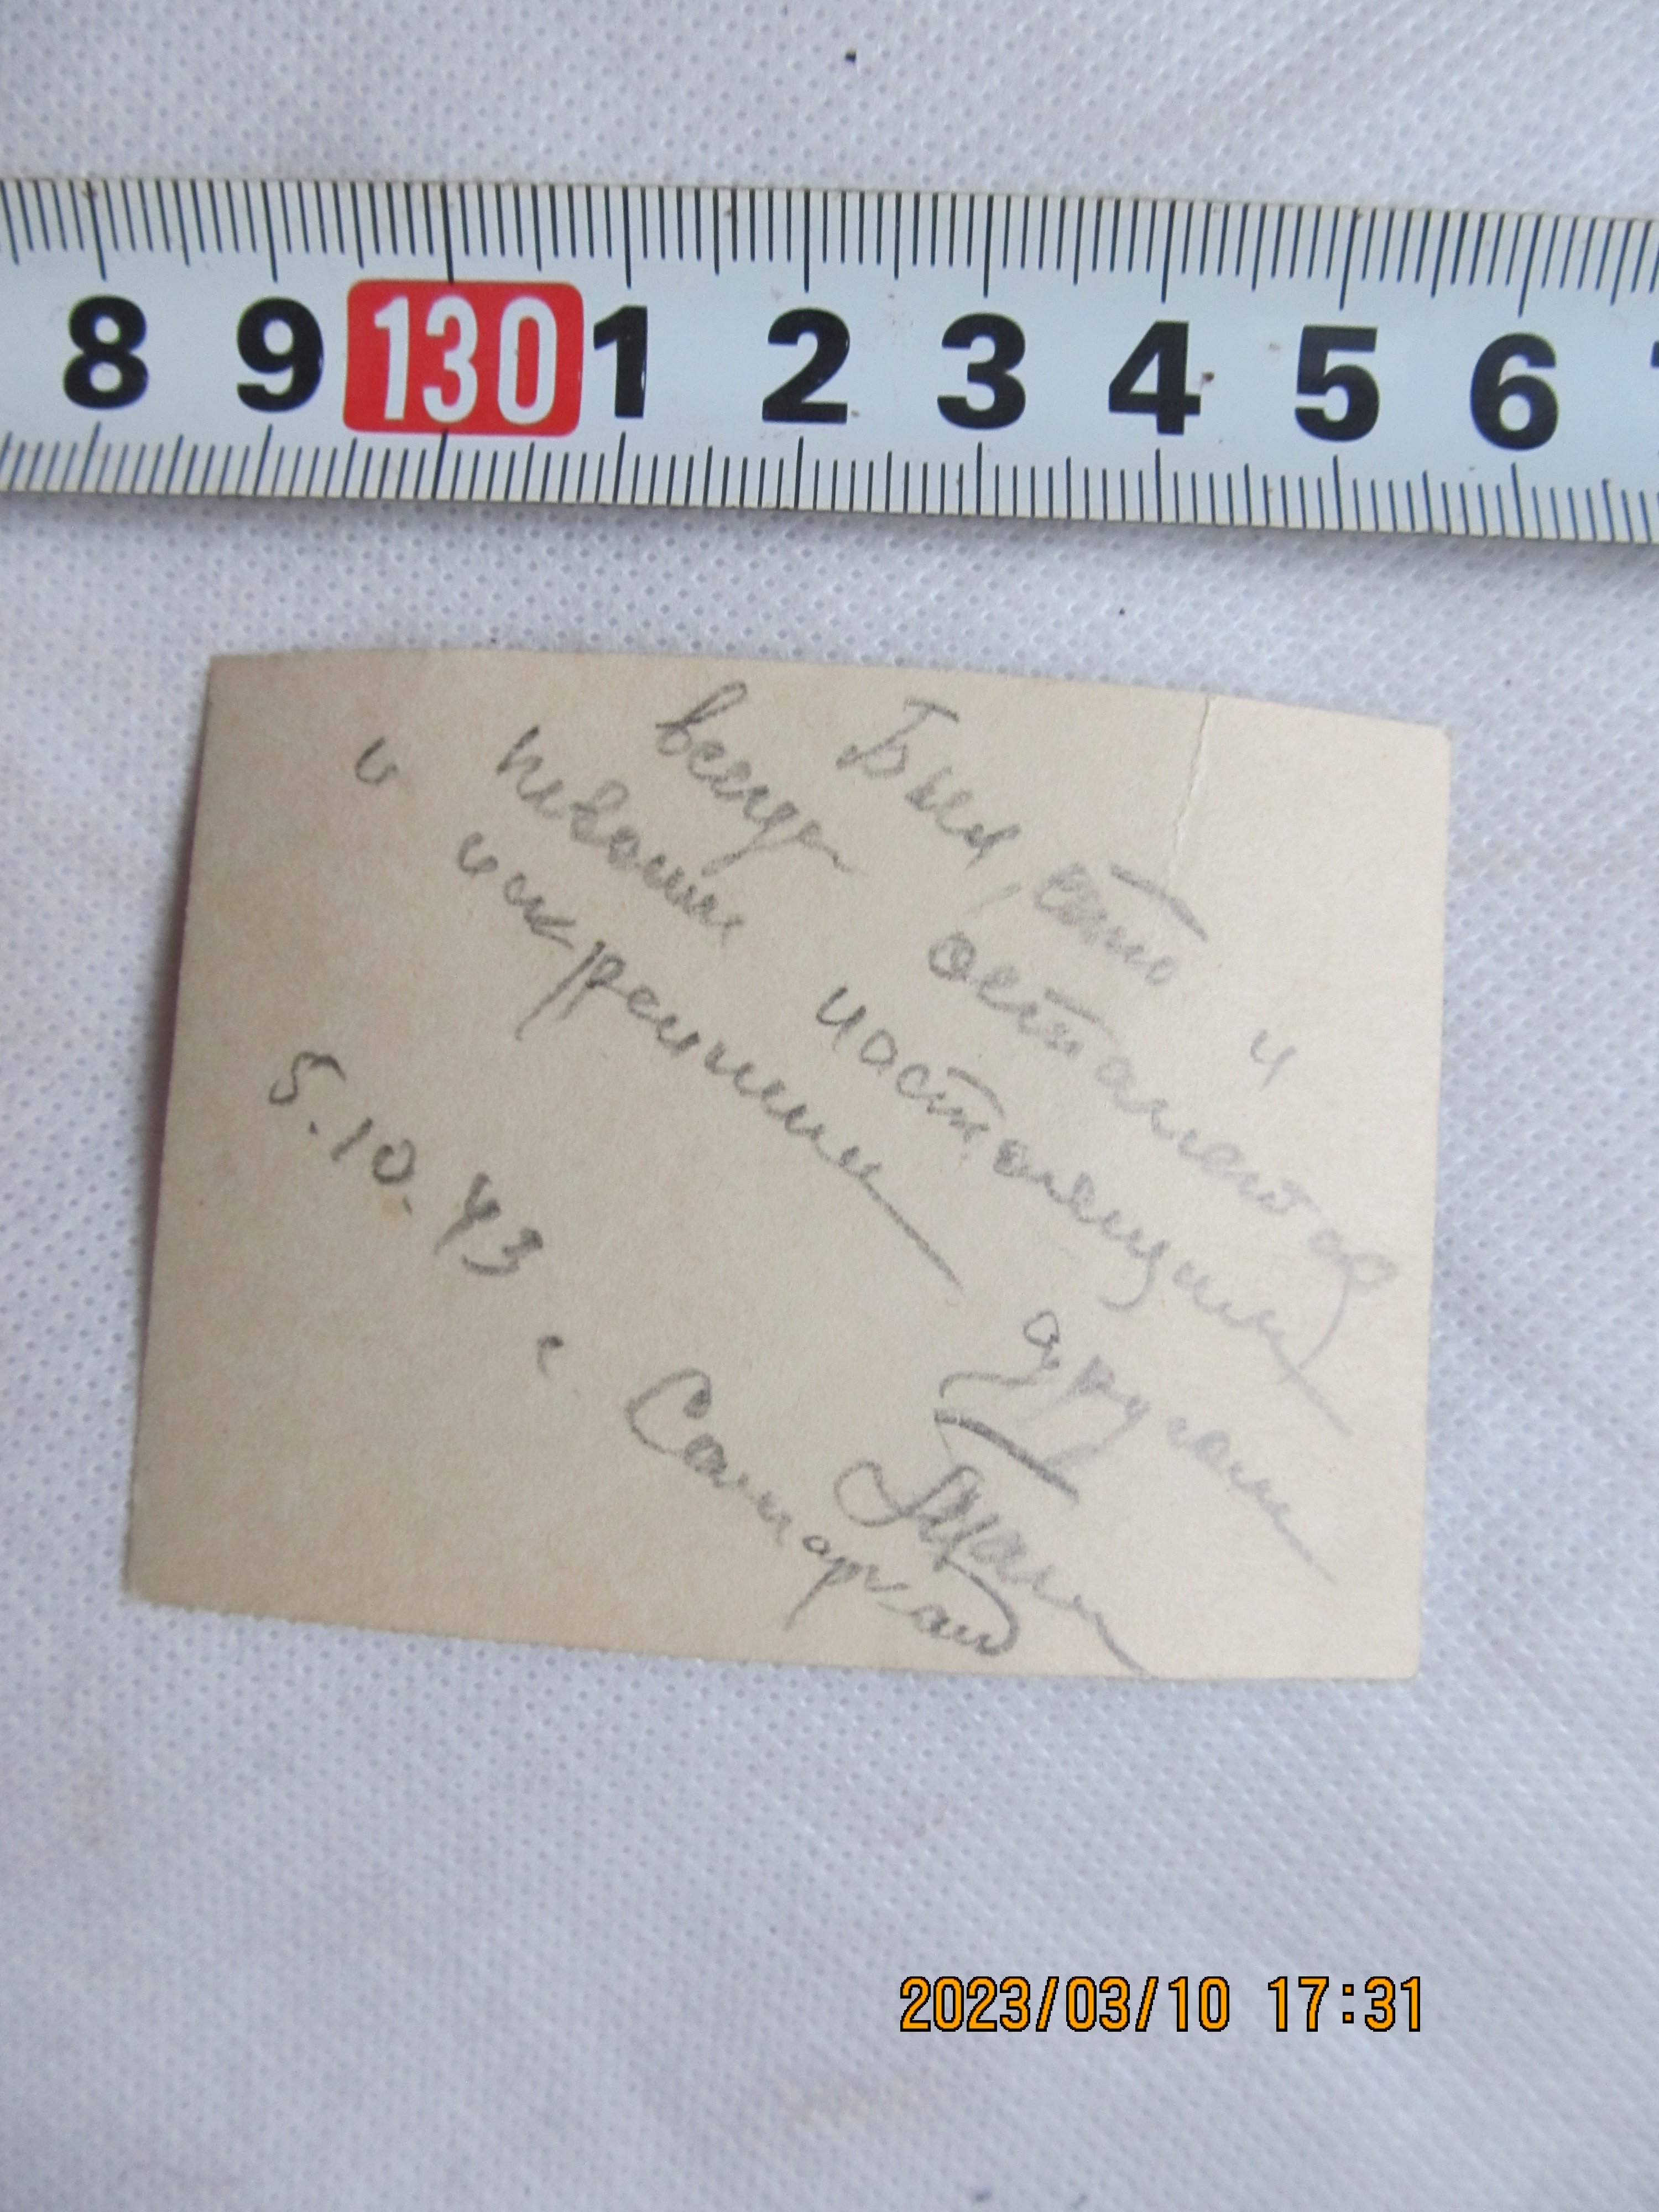 8 9 130 1 2 3 4 5 6
Был, есть и
всегда останется
и навсегда настоящим
искренним другом
5.10.43 г. Самарканд
2023/03/10 17:31